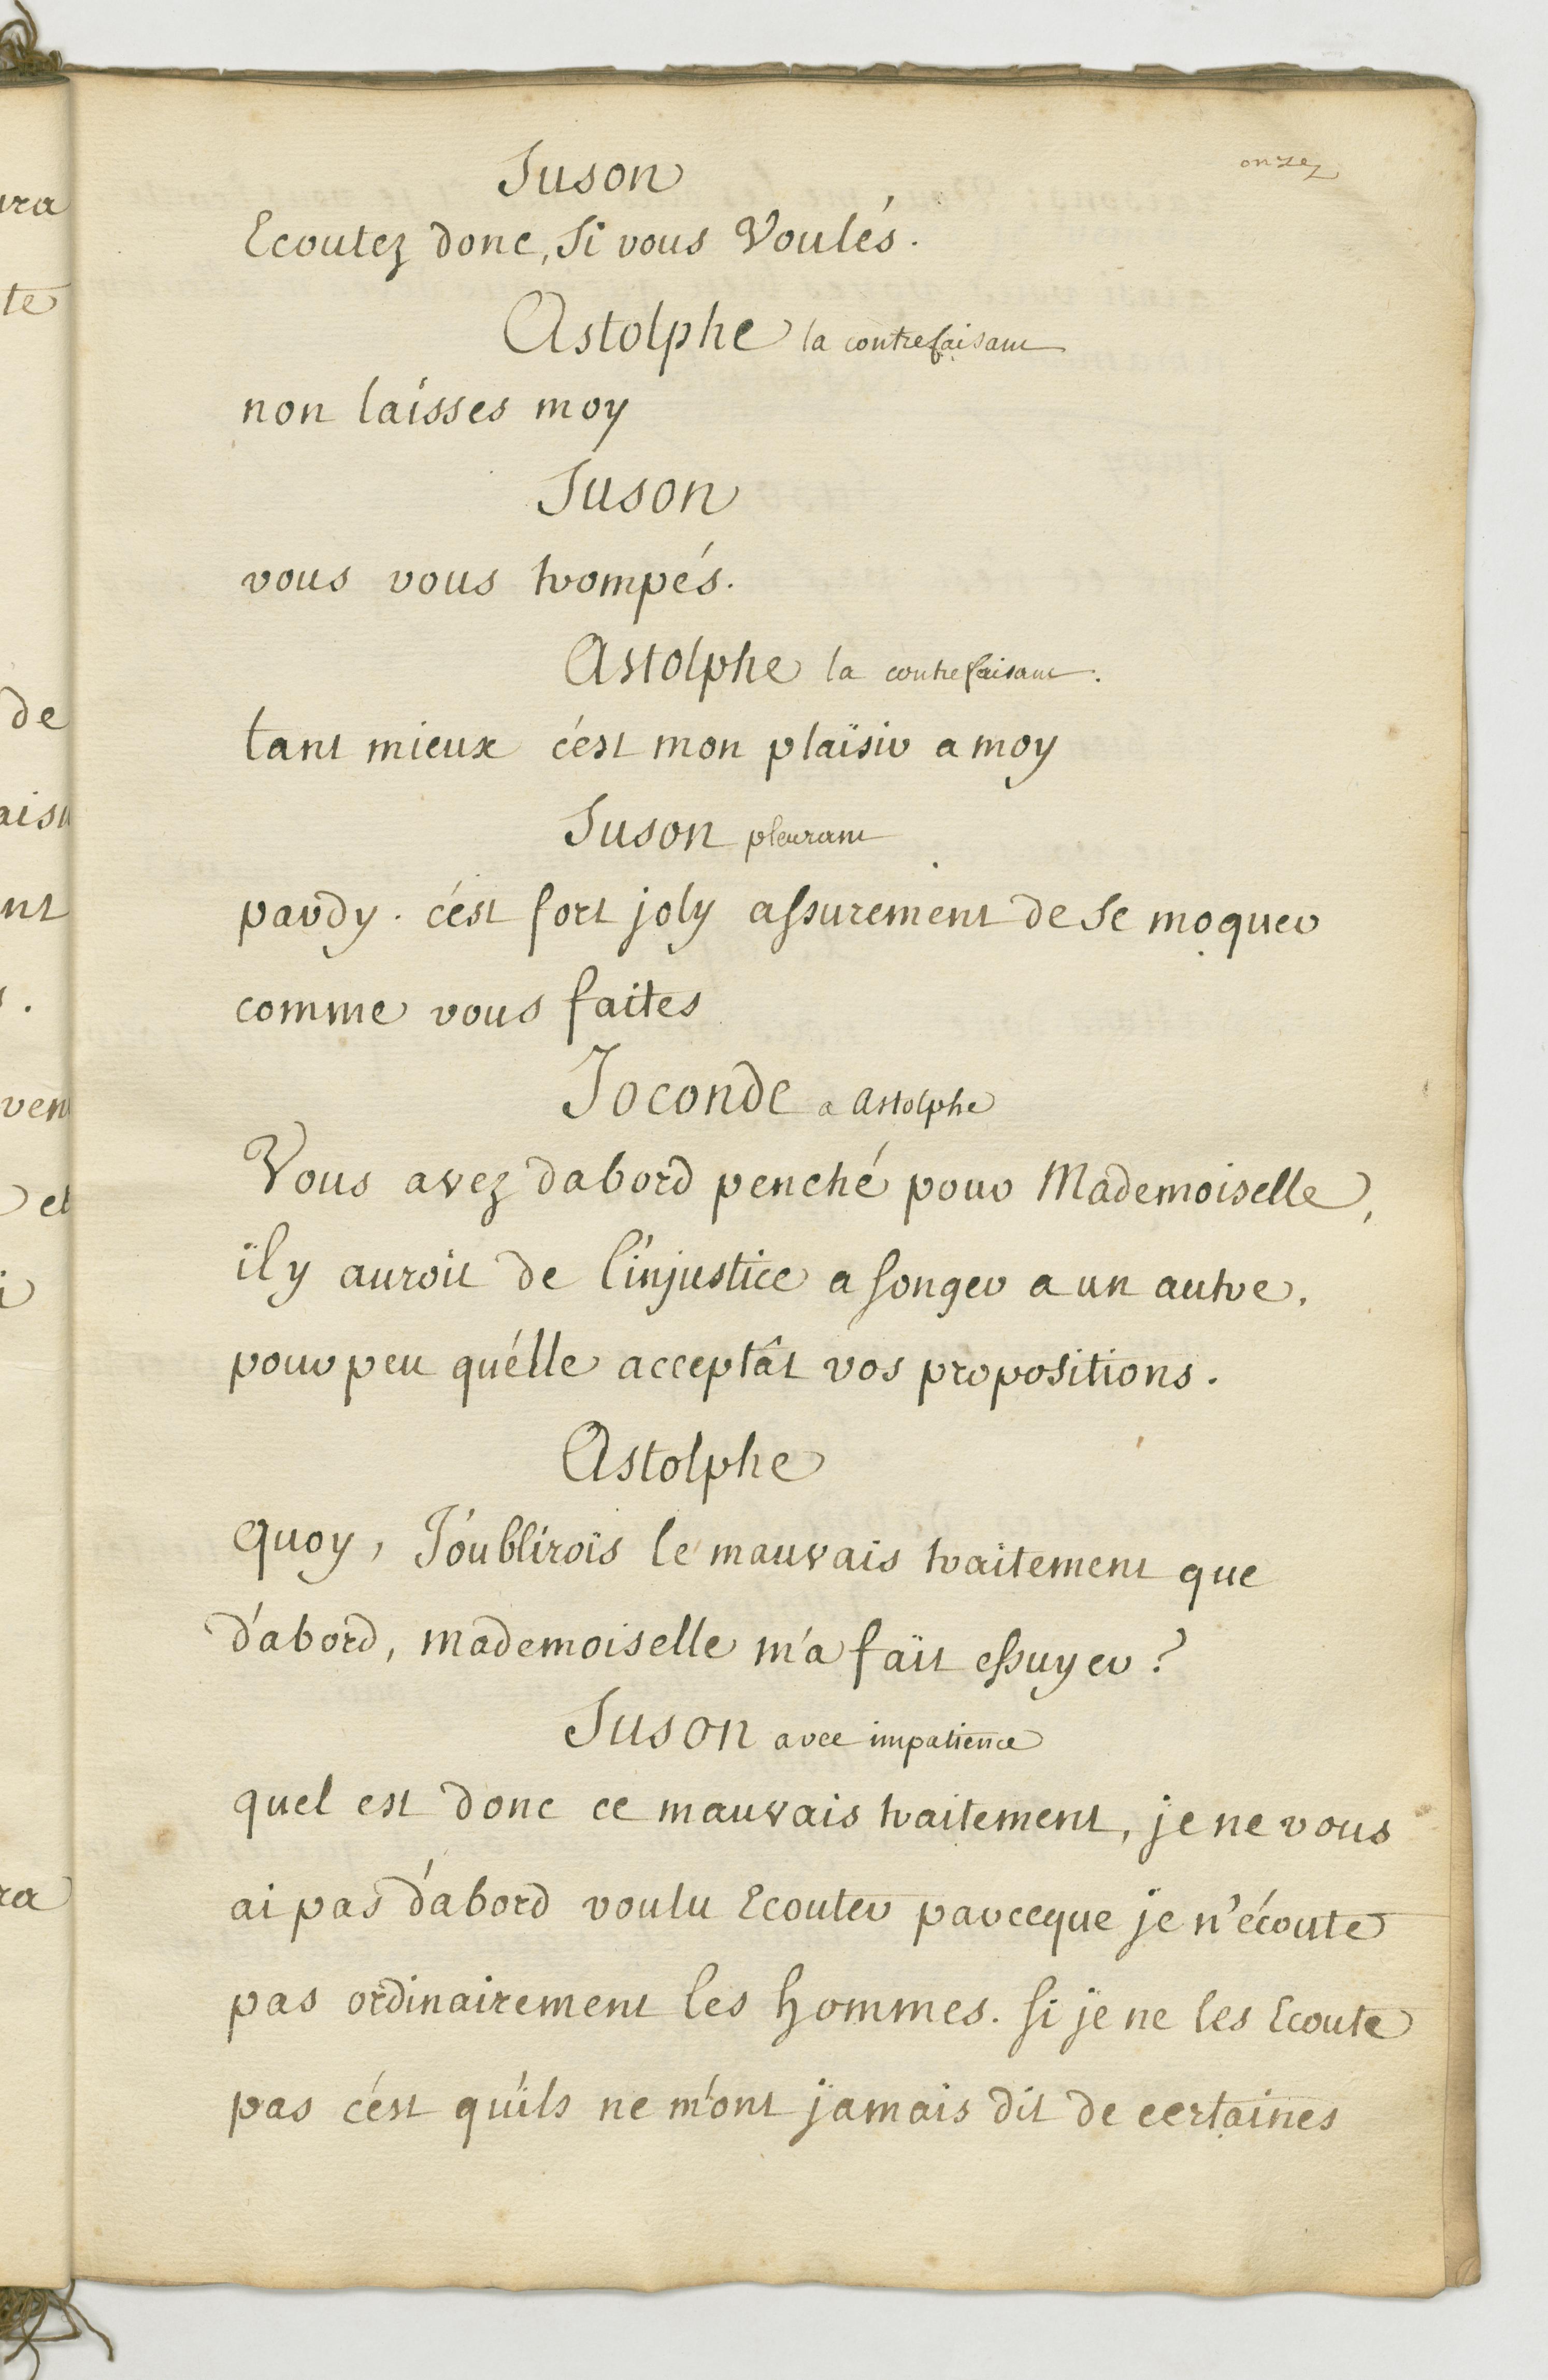 onze
Suson
Ecoutez donc, si vous Voulés.
Astolphe la contrefaisant
non laisses moy
Suson
vous vous trompés.
Astolphe la contrefaisant.
tant mieux c'est mon plaïsir a moy
Suson pleurant
pardy. c'est fort joly assurement de se moquer
comme vous faites
Joconde a astolphe
Vous avez dabord penché pour Mademoiselle,
ïl y auroit de l'injustice a songer a un autre.
pour peu qu'élle acceptât vos propositions.
Astolphe
quoy, J'oublirois le mauvais traitement que
d'abord, mademoiselle m'a faït essuyer?
Suson avec impatience
quel est donc ce mauvais traitement, je ne vous
ai pas d'abord voulu Ecouter parceque je n'écoute
pas ordinairement les hommes. si je ne les Ecoute
pas c'est qu'ils ne m'ont jamais dit de certaines
ura
te
de
aisu
nt
s.
ven
et
i
ra